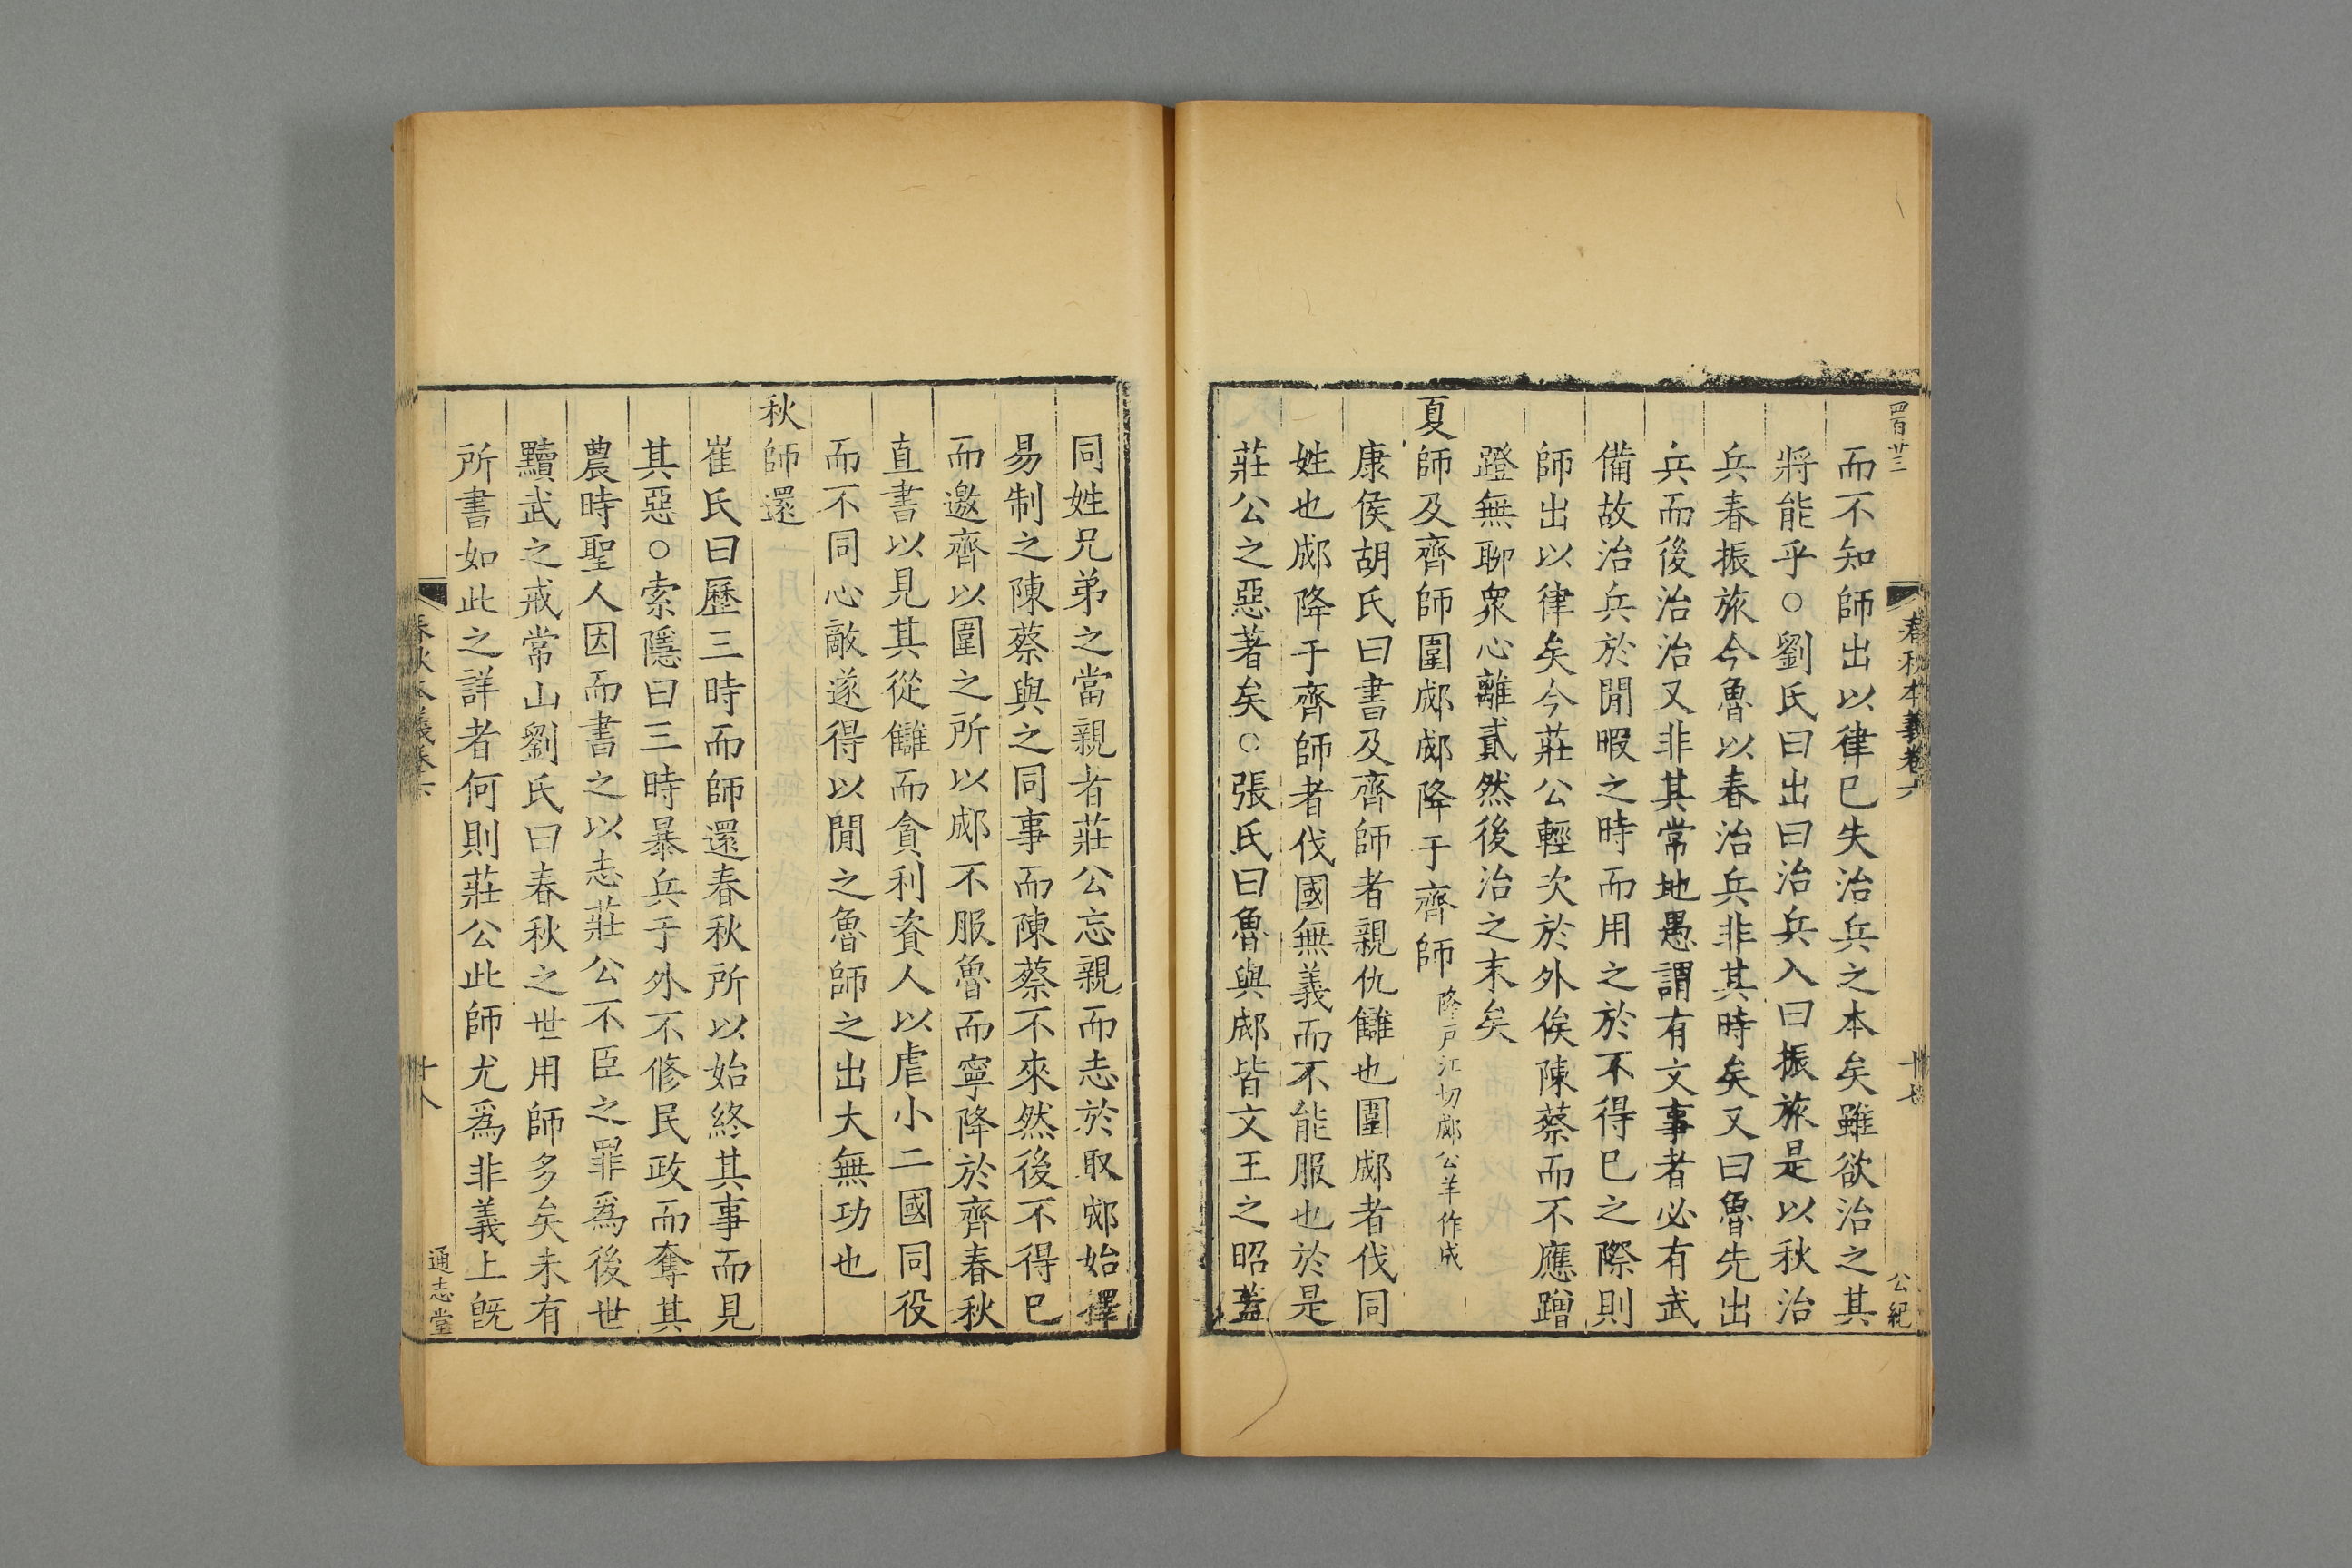 四百廿三
春秋本義卷六
十七
公紀
而不知師出以律已失治兵之本矣雖欲治之其
將能乎○劉氏曰出曰治兵入曰振旅是以秋治
兵春振旅今魯以春治兵非其時矣又曰魯先出
兵而後治治又非其常地愚謂有文事者必有武
備故治兵於閒暇之時而用之於不得巳之際則
師出以律矣今莊公輕次於外俟陳蔡而不應蹭
蹬無聊衆心離貳然後治之末矣
夏師及齊師圍郕郕降于齊師降戸江切郕公羊作成
康侯胡氏曰書及齊師者親仇讎也圍郕者伐同
姓也郕降于齊師者伐國無義而不能服也於是
莊公之惡著矣○張氏曰魯與郕皆文王之昭葢
同姓兄弟之當親者莊公忘親而志於取郕始擇
易制之陳蔡與之同事而陳蔡不來然後不得巳
而邀齊以圍之所以郕不服魯而寧降於齊春秋
直書以見其從讎而貪利資人以虐小二國同役
而不同心敵遂得以閒之魯師之出大無功也
秋師還
崔氏曰歷三時而師還春秋所以始終其事而見
其惡○索隱曰三時暴兵于外不修民政而奪其
農時聖人因而書之以志莊公不臣之罪爲後世
黷武之戒常山劉氏曰春秋之世用師多矣未有
所書如此之詳者何則莊公此師尤爲非義上旣
春秋本義卷六
十八
通志堂